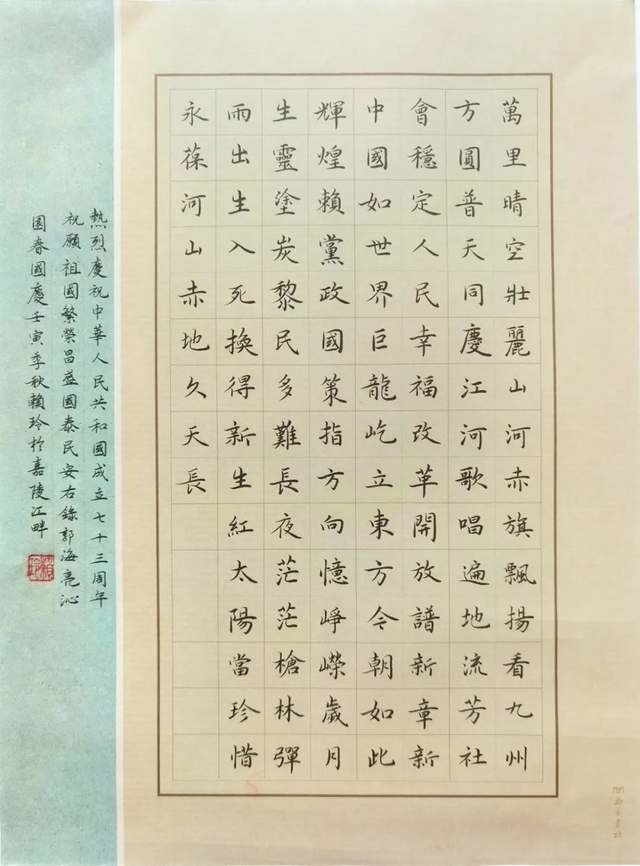 萬里晴空壯麗山河赤旗飄揚看九州
方圓普天同慶江河歌唱遍地流芳社
會穩定人民幸福改革開放譜新章新
中國如世界巨龍屹立東方今朝如此
輝煌賴黨政國策指方向憶崢嶸歲月
生靈塗炭黎民多難長夜茫茫槍林彈
雨出生入死換得新生紅太陽當珍惜
永葆河山赤地久天長
熱烈慶祝中華人民共和國成立七十三周年
祝願祖國繁榮昌盛國泰民安右錄郭海亮沁
園春國慶壬寅季秋賴玲於嘉陵江畔